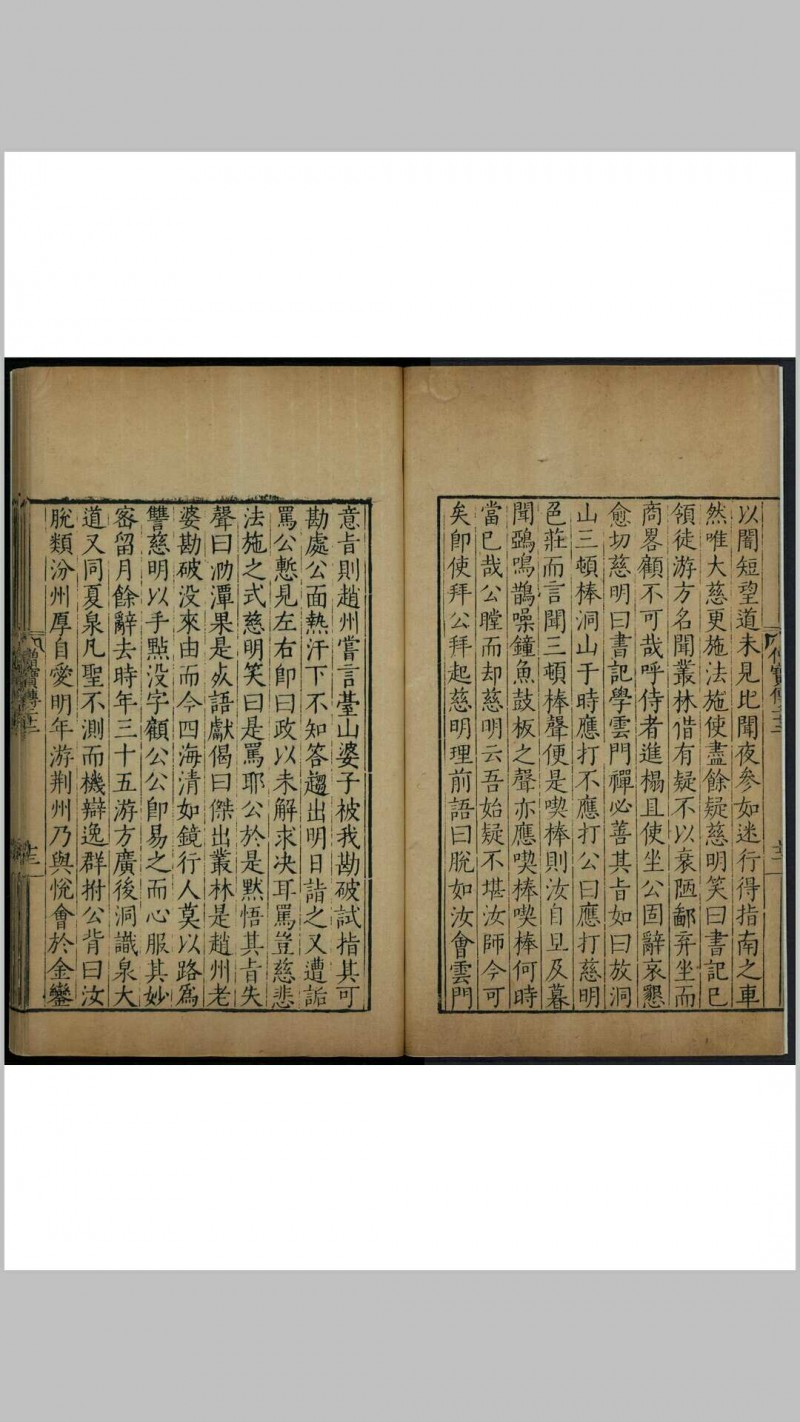 以闇短望道未見比聞夜參如迷行得指南之車
然唯大慈更施法施使盡餘疑慈明笑曰書記已
領徒游方名聞叢林借有疑不以衰陋鄙弃坐而
商畧顧不可哉呼侍者進榻且使坐公固辭哀懇
愈切慈明曰書記學雲門禪必善其旨如曰放洞
山三頓棒洞山于時應打不應打公曰應打慈明
色莊而言聞三頓棒聲便是喫棒則汝自旦及暮
聞鵶鳴鵲噪鐘魚鼓板之聲亦應喫棒喫棒何時
當已哉公瞠而却慈明云吾始疑不堪汝師今可
矣卽使拜公拜起慈明理前語曰脫如汝會雲門
意旨則趙州嘗言臺山婆子被我勘破試指其可
勘處公面熱汗下不知答趨出明日詣之又遭詬
罵公慙見左右卽曰政以未解求决耳罵豈慈悲
法施之式慈明笑曰是罵耶公於是默悟其旨失
聲曰泐潭果是死語獻偈曰傑出叢林是趙州老
婆勘破没來由而今四海清如鏡行人莫以路爲
讐慈明以手點没字顧公公卽易之而心服其妙
密留月餘辭去時年三十五游方廣後洞識泉大
道又同夏泉凡聖不測而機辯逸群拊公背曰汝
脫類汾州厚自愛明年游荆州乃與悅會於金鑾